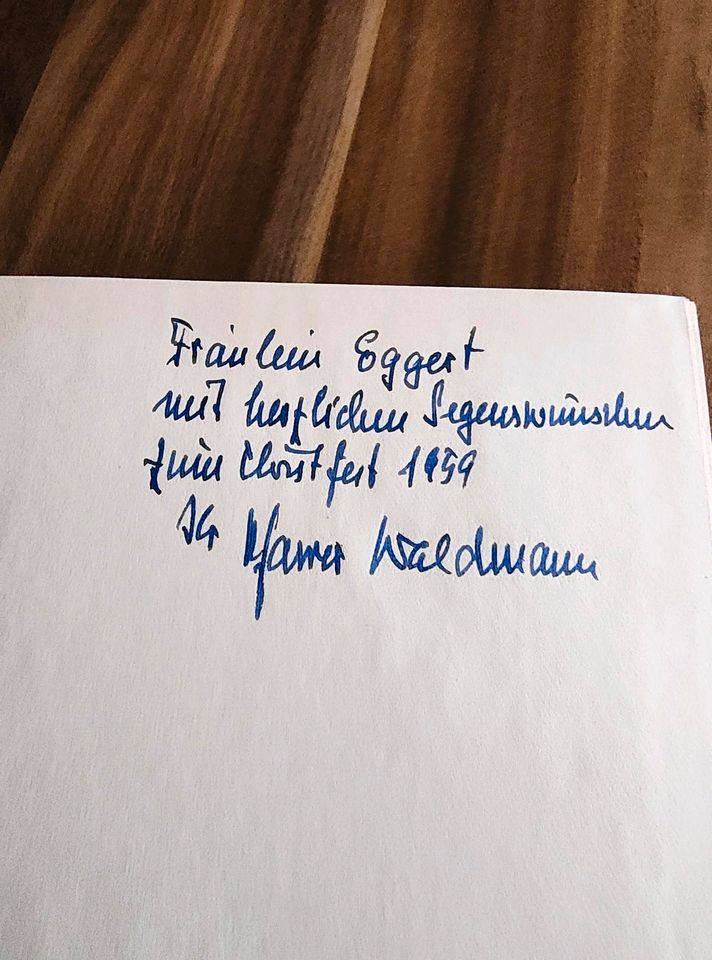 Fräulein Eggert
mit herzlichen Segenswünschen
zum Christfest 1959
Ihr Pfarrer Waldmann